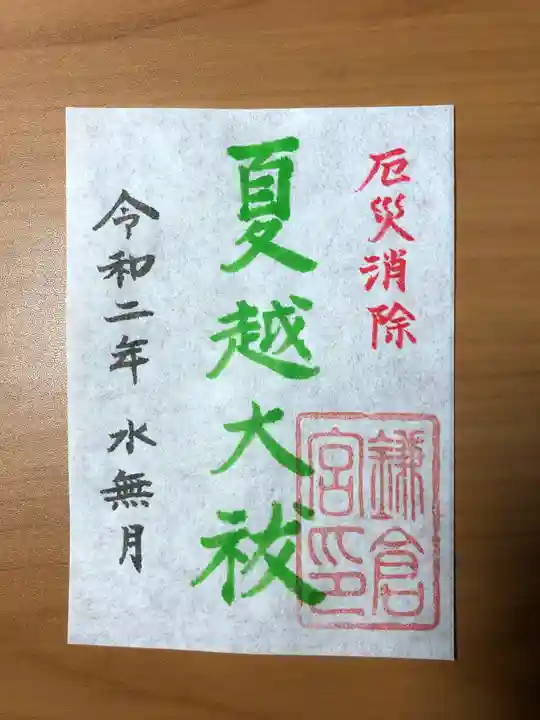 厄災消除
夏越大祓
令和二年 水無月
鎌倉宮印